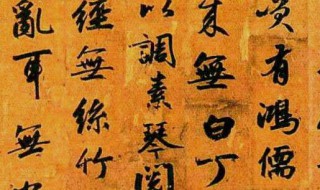 咲有鴻儒
來無白丁
以調素琴閱
經無絲竹
亂耳無